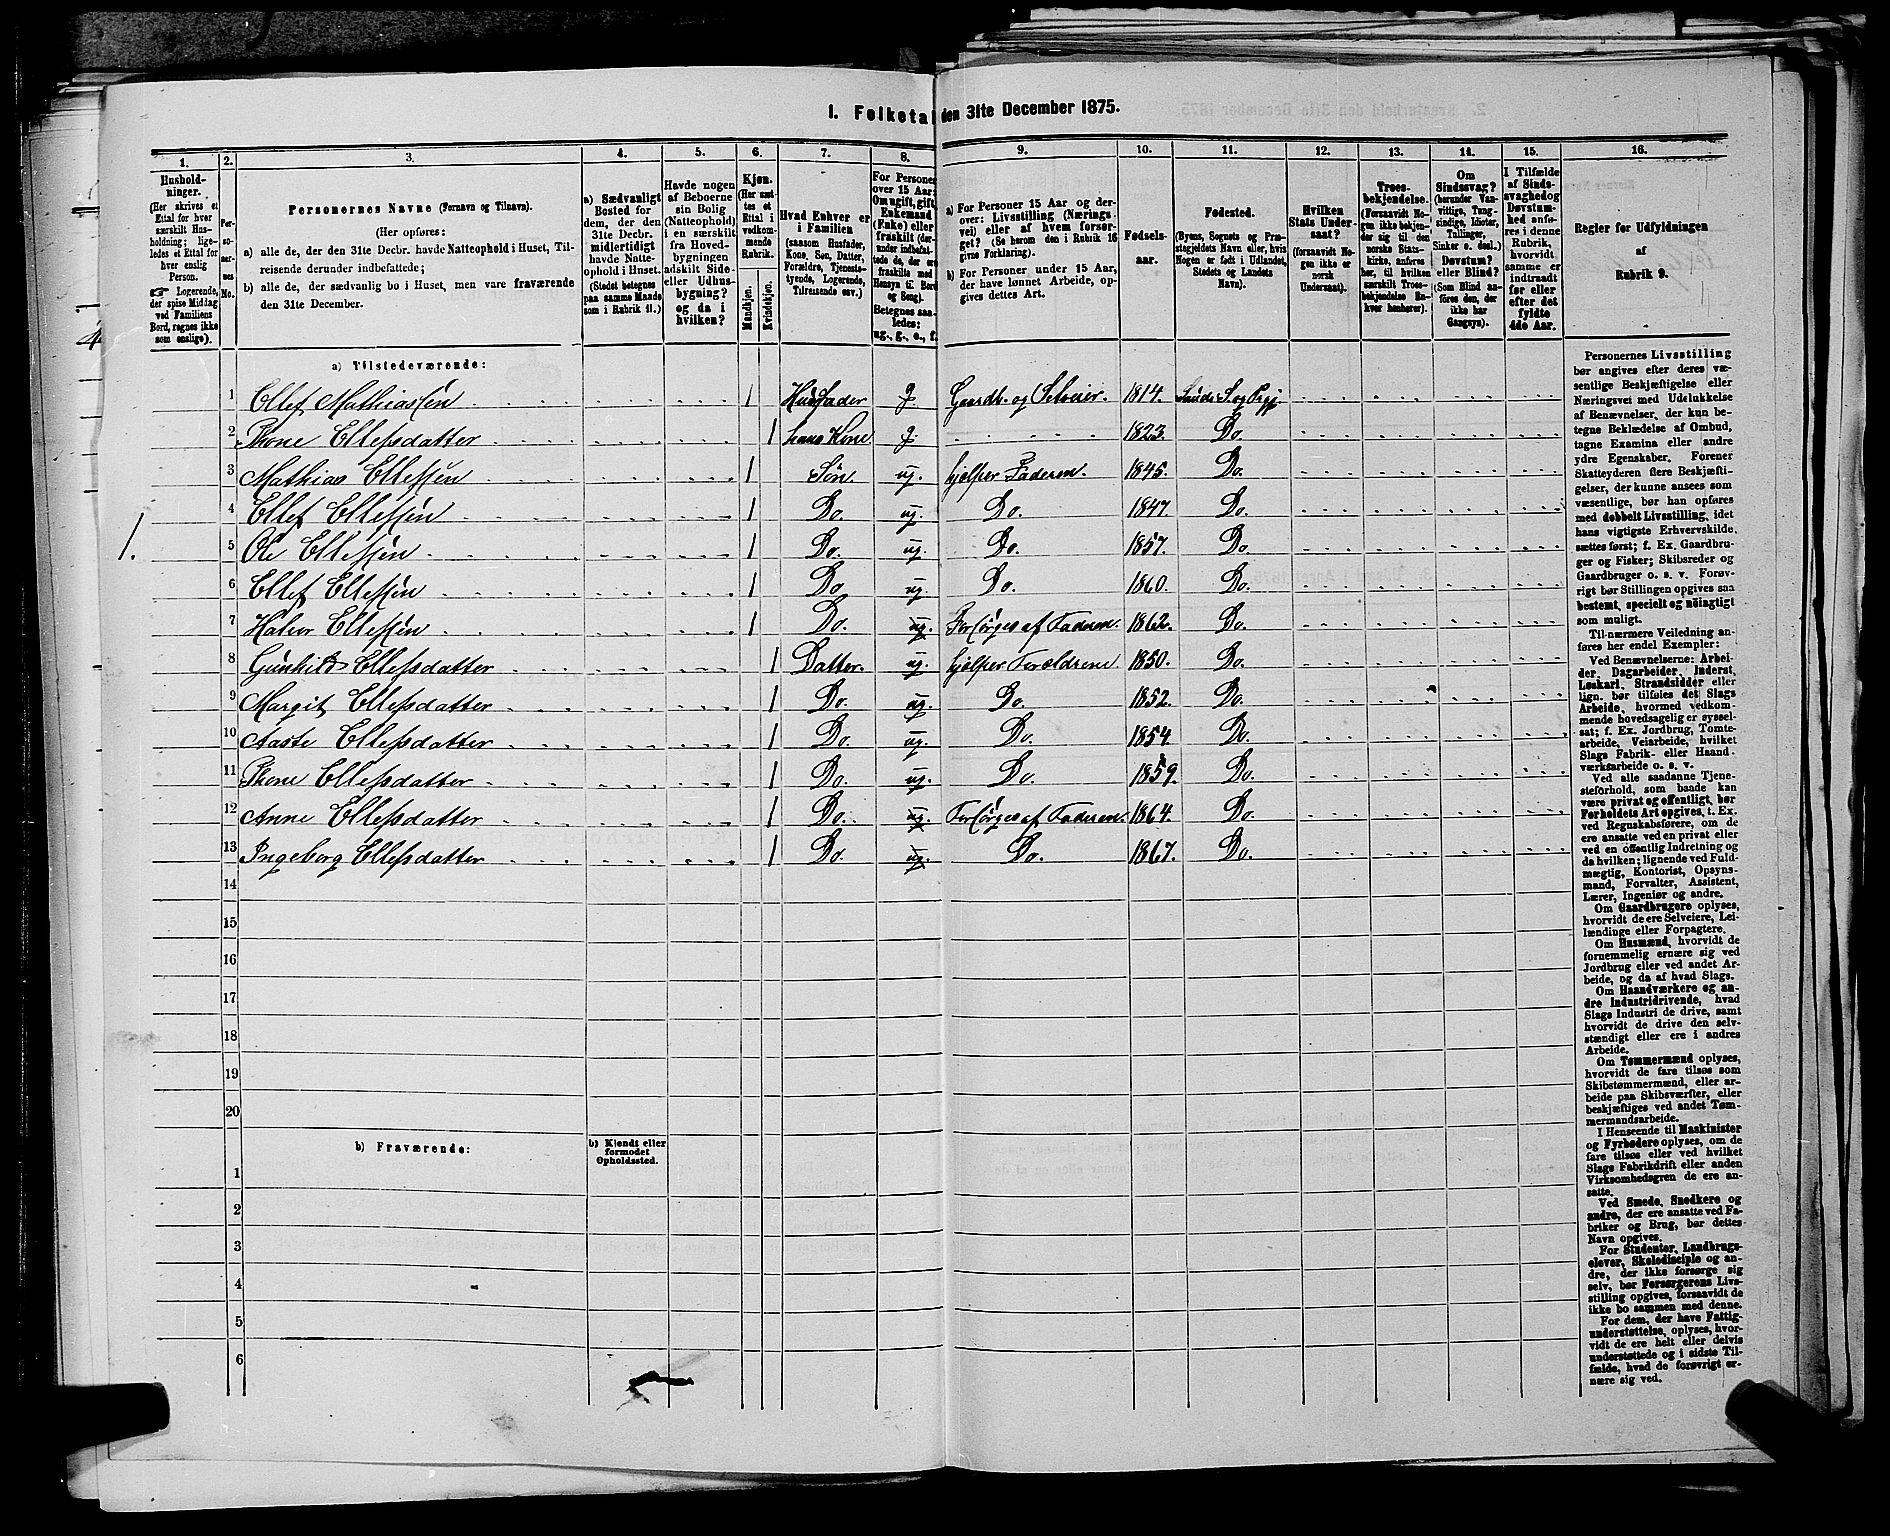 1. Folketal den 31te December 1875.
1. 2. 3. 4. 5. 6. 7. 8. 9. 10. 11. 12. 13. 14. 15. 16.
Hushold-
ninger.
(Her skrives et
Ettal for hver
særskilt Hus-
holdning; lige-
ledes et Ettal for
hver enslig
Person.
☞ Logerende,
der spise Middag
ved Familiens
Bord, regnes ikke
som enslige).
Per-
so-
ner-
nes
No.
Personernes Navne (Fornavn og Tilnavn).
(Her opføres:
a) alle de, der den 31te Decbr. havde Natteophold i Huset, Til-
reisende derunder indbefattede;
b) alle de, der sædvanlig bo i Huset, men vare fraværende
den 31te December.
a) Sædvanligt
Bosted for
dem, der den
31te Decbr.
midlertidigt
havde Natte-
ophold i Huset.
(Stedet betegnes
paa samme Maade
som i Rubrik 11.)
Havde nogen
af Beboerne
sin Bolig
(Natteophold)
i en særskilt
fra Hoved-
bygningen
adskilt Side-
eller Udhus-
bygning?
og da i
hvilken?
Kjøn.
(Her sæt-
tes et
Ettal i
vedkom-
mende
Rubrik.
Mandkjøn.
Kvindekjøn.
Hvad Enhver er
i Familien
(saasom Husfader,
Kone, Søn, Datter,
Forældre, Tjeneste-
tyende, Logerende,
Tilreisende osv.)
For Personer
over 15 Aar:
Om ugift, gift,
Enkemand
(Enke) eller
fraskilt (der-
under indbefat-
tede de, der ere
fraskilte med
Hensyn til Bord
og Seng).
Betegnes saa-
ledes:
ug., g., e., f.
a) For Personer 15 Aar og der-
over: Livsstilling (Nærings-
vei) eller af hvem forsør-
get? (Se herom den i Rubrik 16
givne Forklaring).
b) For Personer under 15 Aar,
der have lønnet Arbeide, op-
gives dettes Art.
Fødsels-
aar.
Fødested.
(Byens, Sognets og Præ-
stegjeldets Navn eller, hvis
Nogen er født i Udlandet,
Stedets og Landets
Navn).
Hvilken
Stats Under-
saat?
(forsaavidt No-
gen ikke er
norsk
Undersaat).
Troes-
bekjendelse.
(Forsaavidt No-
gen ikke bekjen-
der sig til den
norske Stats-
kirke, anføres
her, til hvilken
særskilt Troes-
bekjendelse En-
hver henhører).
Om
Sindssvag?
(herunder Van-
vittige, Tung-
sindige, Idioter,
Tullinger,
Sinker o. desl.)
Døvstum?
eller Blind?
(Som Blind an-
føres den, der
ikke har
Gangsyn).
I Tilfælde
af Sinds-
svaghed og
Døvstum-
hed anfø-
res i denne
Rubrik,
hvorvidt
samme er
indtraadt
før eller
efter det
fyldte
4de Aar.
Regler for Udfyldningen
af
Rubrik 9.
a) Tilstedeværende:
1 Ellef Mathiassen 1 Husfader g. Gaardb. og Selveier. 1814. Saude S. og Pgj.
2 Thone Ellefsdatter 1 hans Kone g. 1823. Do.
3 Mathias Ellefsen 1 Søn ug. hjælper Faderen. 1845. Do.
4 Ellef Ellefsen 1 Do. ug. Do. 1847. Do.
1.
5 Ole Ellefsen 1 Do. ug. Do. 1857. Do.
6 Ellef Ellefsen 1 Do. ug. Do. 1860. Do.
7 Halvor Ellefsen 1 Do. ug. Forsørges af Faderen. 1862. Do.
8 Gunhild Ellefsdatter 1 Datter. ug. hjælper Forældrene 1850. Do.
9 Margit Ellefsdatter 1 Do. ug. Do. 1852. Do.
10 Aaste Ellefsdatter 1 Do. ug. Do. 1854. Do.
11 Thone Ellefsdatter 1 Do. ug. Do. 1859. Do.
12 Anne Ellefsdatter 1 Do. ug. Forsørges af Faderen. 1864. Do.
13 Ingeborg Ellefsdatter 1 Do. ug. Do. 1867. Do.
14
15
16
17
18
19
20
b) Fraværende:
b) Kjendt eller
formodet
Opholdssted.
1
2
3
4
5
6
Personernes Livsstilling
bør angives efter deres væ-
sentlige Beskjæftigelse eller
Næringsvei med Udelukkelse
af Benævnelser, der kun be-
tegne Beklædelse af Ombud,
tagne Examina eller andre
ydre Egenskaber. Forener
Skatteyderen flere Beskjæfti-
gelser, der kunne ansees som
væsentlige, bør han opføres
med dobbelt Livsstilling, idet
hans vigtigste Erhvervskilde
sættes først; f. Ex. Gaardbru-
ger og Fisker; Skibsreder og
Gaardbruger o. s. v. Forøv-
rigt bør Stillingen opgives saa
bestemt, specielt og nöiagtigt
som muligt.
Til nærmere Veiledning an-
føres her endel Exempler:
Ved Benævnelserne: Arbei-
der, Dagarbeider, Inderst,
Løskarl, Strandsidder eller
lign. bør tilføies det Slags
Arbeide, hvormed vedkom-
mende hovedsagelig er syssel-
sat; f. Ex. Jordbrug, Tomte-
arbeide, Veiarbeide, hvilket
Slags Fabrik- eller Haand-
værksarbeide o. s. v.
Ved alle saadanne Tjene-
steforhold, som baade kan
være privat og offentligt, bør
Forholdets Art opgives, t. Ex.
ved Regnskabsførere, om de
ere ansatte ved en privat eller
ved en offentlig Indretning og
da hvilken; lignende ved Fuld-
mægtig, Kontorist, Opsyns-
mand, Forvalter, Assistent,
Lærer, Ingeniør og andre.
Om Gaardbrugere oplyses,
hvorvidt de ere Selveiere, Lei-
lændinge eller Forpagtere.
Om Husmænd, hvorvidt de
fornemmelig ernære sig ved
Jordbrug eller ved andet Ar-
beide, og da af hvad Slags.
Om Haandværkere og an-
dre Industridrivende, hvad
Slags Industri de drive, samt
hvorvidt de drive den selv-
stændigt eller ere i andres
Arbeide.
Om Tømmermænd oplyses,
hvorvidt de fare tilsøs som
Skibstømmermænd, eller ar-
beide paa Skibsværfter, eller
beskjæftiges ved andet Tøm-
mermandsarbeide.
I Henseende til Maskinister
og Fyrbødere oplyses, om de
fare tilsøs eller ved hvilket
Slags Fabrikdrift eller anden
Virksomhedsgren de ere an-
satte.
Ved Smede, Snedkere og
andre, der ere ansatte ved Fa-
briker og Brug, bør dettes
Navn opgives.
For Studenter, Landbrugs-
elever, Skoledisciple og an-
dre, der ikke forsørge sig
selv, bør Forsørgerens Livs-
stilling opgives, forsaavidt de
ikke bo sammen med denne.
For dem, der have Fattig-
understøttelse, oplyses, hvor-
vidt de ere helt eller delvis
understøttede og i sidste Til-
fælde, hvad de forøvrigt er-
nære sig ved.